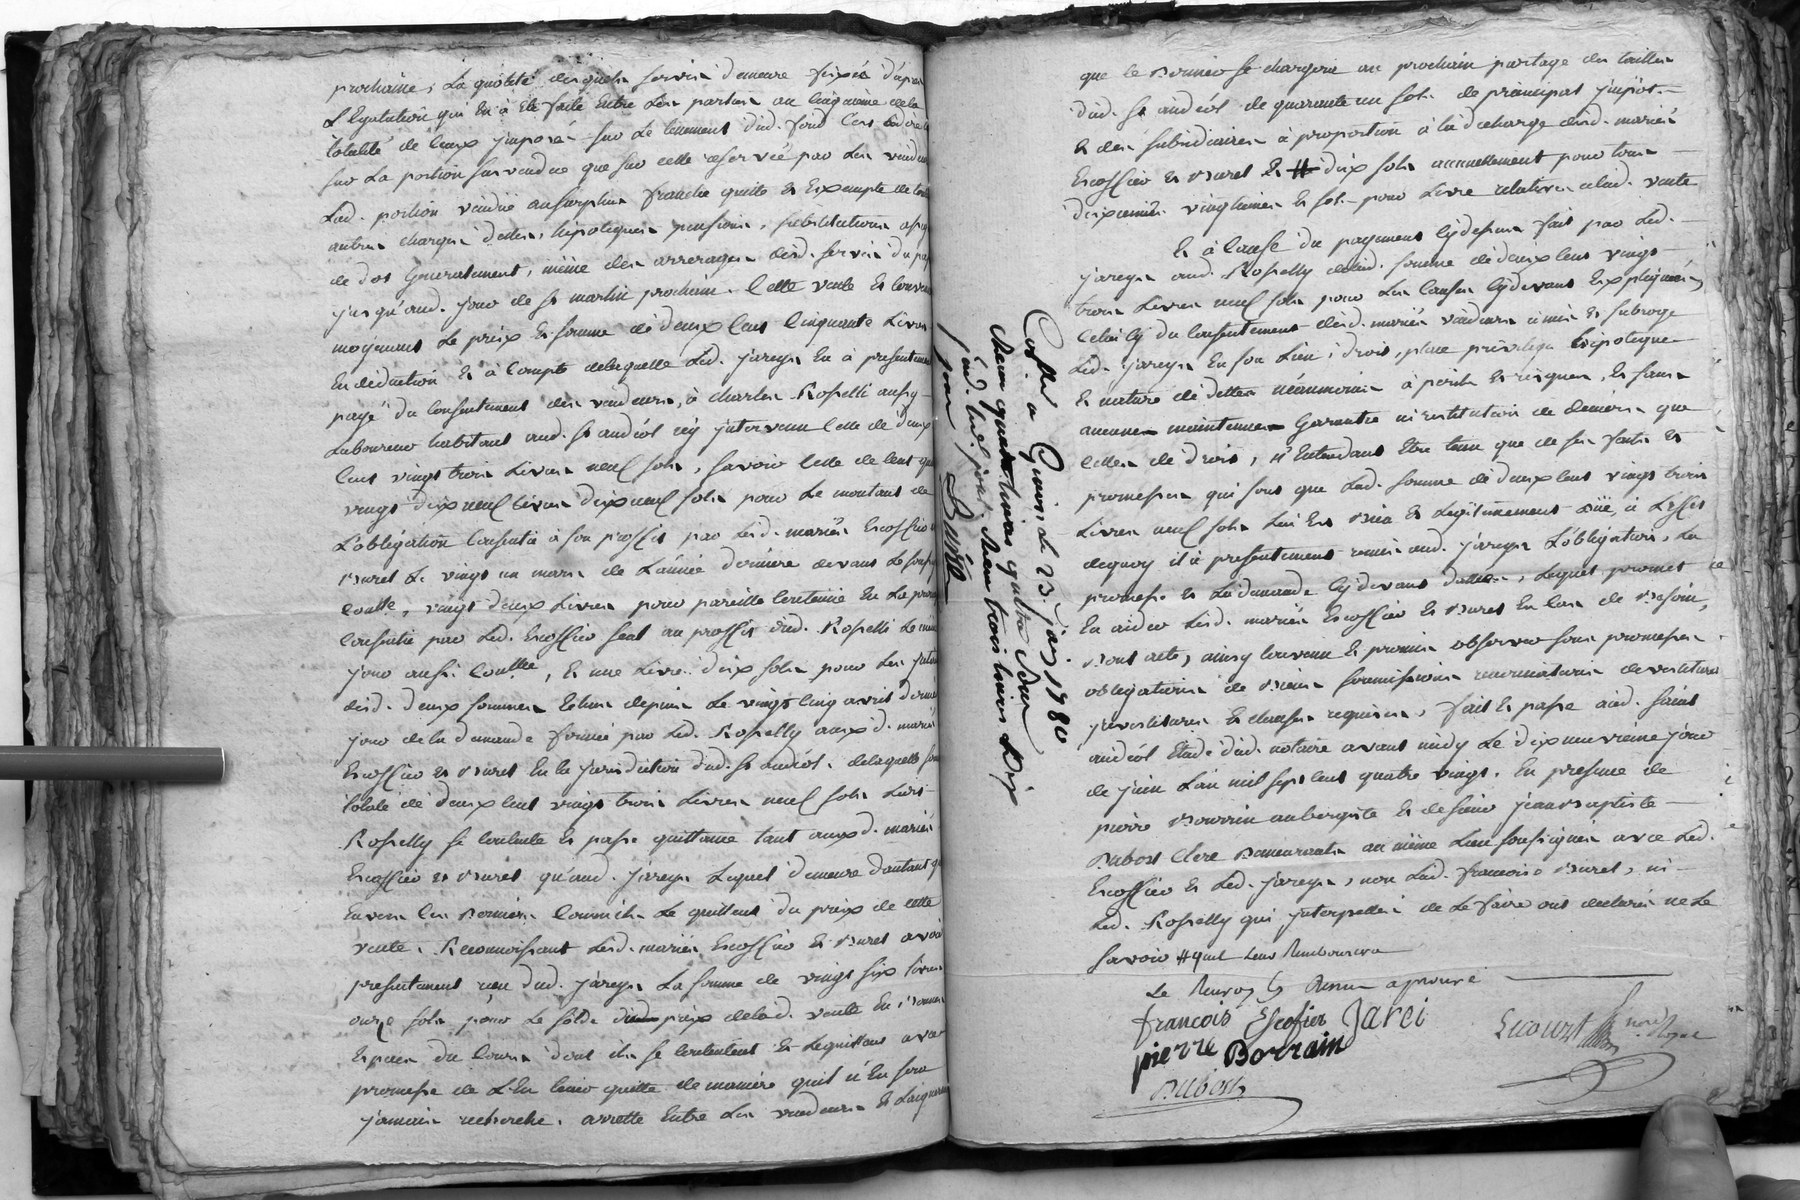 prochaine, La quotité desquels servis demeure fixée d'après
L'Egalation qui en à été faite Entre Les parties au cinquième de la
totalité de Ceux jmposés sur Le tenement dud. fond
sur La portion survendue que sur celle reservée par Les vendeurs
Lad. portion vendue au surplus franche quitte et Exempte de toutes
autres charges dettes, hipoteques pensions, substitutions
de dot Generalement, même des arrerages desd. servis du passé
jusqu'aud. jour de st martin prochaine. Cette vente Et convenue
moyenant Le prix Et somme de deux Cent Cinquante Livres
En déduction Et à Compte de laquelle Led. jareys En à presentement
payé du Consentement des vendeurs, à charles Rosselli aussy
Laboureur habitant aud. st andéol icy jntervenu Celle de deux
Cent vingt trois Livres neuf sols, savoir Celle de Cent quatre
vingt dix neuf Livres dix neuf sols pour Le montant de
L'obligation Consentie à son proffit par Lesd. mariés Escoffier
Buret Le vingt un mars de L'année dernière devant Le
, vingt deux Livres pour pareille Contenüe En La promesse
Consentie par Led. Escoffier seul au proffit dud. Rosselli Le même
jour aussi , Et une Livre dix sols pour Les jnterets
desd. deux sommes Echus depuis Le vingt Cinq avril dernier
jour de la demande formée par Led. Rosselly auxd. mariés
Escoffier et Buret En la jurisdiction dud. st andéol. de laquelle somme
totale de deux Cent vingt trois Livres neuf sols Led.
Rosselly se Contente Et passe quittance tant auxd. mariés
Escoffier et Buret qu'aud. jareys Lequel demeure d'autant quitte
Envers Ces Derniers Comme ils Le quittent du prix de cette
vente. Reconnoissant Lesd. mariés Escoffier Et Buret avoir
presentement reçu dud. jareys La somme de vingt six Livres
onze sols pour Le solde du prix de lad. vente En bonnes
Especes du Cours dont ils se Contentent Et Le quittent avec
promesse de L'En tenir quitte de manière qu'il n'En sera
jamais recherché. arretté Entre Les vendeurs Et L'acquereur
Collé a Givors Le 23. juin 1780
Reçu quatre livres quatre sols
Reçu trois livres dix
que le Dernier se chargera au prochain partage des tailles
dud. st andéol de quarante un sols de principal jmpôt
Et des subsidiaires à proportion à la decharge desd. mariés
Escoffier et Buret Et # dix sols annuellement pour tous
dixiemes vingtiemes Et sols pour Livre relatives à lad. vente
Et à Cause du payement Cy dessus fait par Led.
jareys aud. Rosselly de lad. somme de deux Cent vingt
trois Livres neuf sols pour Les Causes Cy devant Expliquées,
Celui Cy du Consentement desd. mariés vendeurs à mis Et subrogé
Led. jareys En son Lieu, droit, place privilege hipoteque
Et nature de dettes néanmoins à perils Et risques, Et sans
aucune maintenue Garantie ni restitution de deniers que
celles de droit, n'Entendant Etre tenu que de ses faits Et
promesses qui sont que Lad. somme de deux Cent vingt trois
Livres neuf sols Lui Est bien Et Legitimement düe, à L'effet
dequoy il à presentement remis aud. jareys L'obligation, La
promesse Et La demande Cy devant dattées, Lequel promet
En aider Lesd. mariés Escoffier Et Buret En Cas de Besoin,
Dont acte, ainsy Convenu Et promis observer sous promesses
obligations de Biens soumissions renonciations devestitures
jnvestitures Et clauses requises, fait Et passé aud. saint
andéol Etude dud. notaire avant midy Le dix neuvieme jour
de juin L'an mil sept Cent quatre vingt. En presence de
pierre Borrin aubergiste Et de sieur jean baptiste
Dubost Clerc Demeurants au même Lieu soussignés avec Led.
Escoffier Et Led. jareys, non Lad. françoise Buret, ni
Led. Rosselly qui jnterpellés de Le faire ont declaré ne Le
savoir # qu'il Leur Remboursera
Le Renvoy Cy Dessus aprouvé
françois Escofier Jarei
pierre Borrain
Dubost